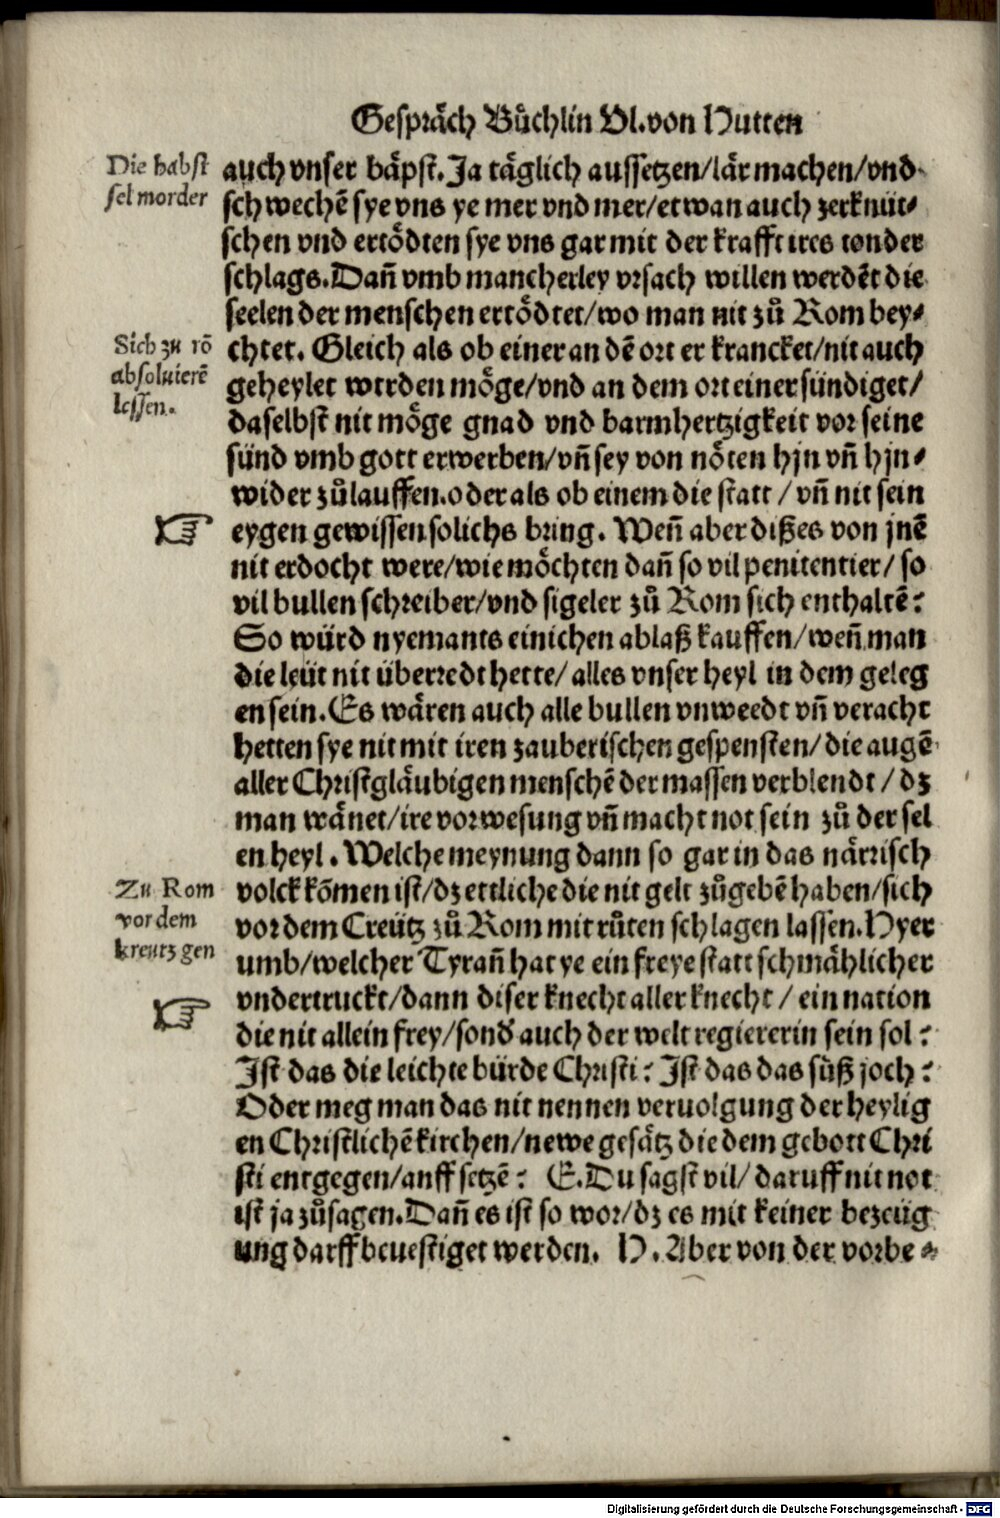 Gespräch Bůchlin Vl. von Hutten
Die babst
sel morder
auch vnser bäpst. Ja täglich aussetzen/lär machen/vnd
schwechē sye vns ye mer vnd mer/etwan auch zerknüt⸗
schen vnd ertödten sye vns gar mit der krafft ires tonder
schlags. Dañ vmb mancherley vrsach willen werdēt die
seelen der menschen ertödtet/wo man nit zů Rom bey⸗
Sich zu rō
absoluierē
lessen.
chtet. Gleich als ob einer an dē ort er krancket/nit auch
geheylet werden möge/vnd an dem ort einer sündiget/
daselbst nit möge gnad vnd barmhertzigkeit vor seine
sünd vmb gott erwerben/vñ sey von nöten hjn vñ hjn⸗
wider zůlauffen. oder als ob einem die statt / vñ nit sein
☞ eygen gewissen solichs bring. Weñ aber dißes von jnē
nit erdocht were/wie möchten dañ so vil penitentier/ so
vil bullen schreiber/vnd sigeler zů Rom sich enthaltē?
So würd nyemants einichen ablaß kauffen/weñ man
die leüt nit überredt hette/ alles vnser heyl in dem geleg
en sein. Es wären auch alle bullen vnweedt vñ veracht
hetten sye nit mit iren zauberischen gespensten/ die augē
aller Christgläubigen menschē der massen verblendt / dz
man wänet/ire vorwesung vñ macht not sein zů der sel
en heyl. Welche meynung dann so gar in das närrisch
Zu Rom
vor dem
kreutz gen
volck kōmen ist/dz ettliche die nit gelt zůgebē haben/sich
vor dem Creütz zů Rom mit růten schlagen lassen. Hyer
umb/welcher Tyrañ hat ye ein freye statt schmählicher
☞ vndertruckt/dann diser knecht aller knecht / ein nation
die nit allein frey/sonđ auch der welt regiererin sein sol?
Ist das die leichte bürde Christi? Ist das das süß joch?
Oder meg man das nit nennen veruolgung der heylig
en Christlichē kirchen/newe gesätz die dem gebott Chri
sti entgegen/auff setzē? E. Du sagst vil/ daruff nit not
ist ja zůsagen. Dañ es ist so wor/dz es mit keiner bezeüg
ung darff beuestiget werden. H. Aber von der vorbe⸗
Digitalisierung gefördert durch die Deutsche Forschungsgemeinschaft - DFG